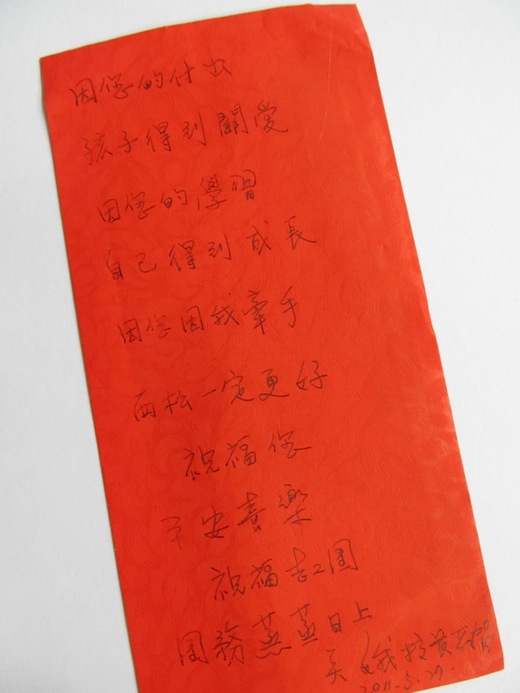 因您的付出
孩子得到關愛
因您的學習
自己得到成長
因您因我牽手
西松一定更好
祝福您
平安喜樂
祝福志工團
團務蒸蒸日上
美娥
2011.5.27.